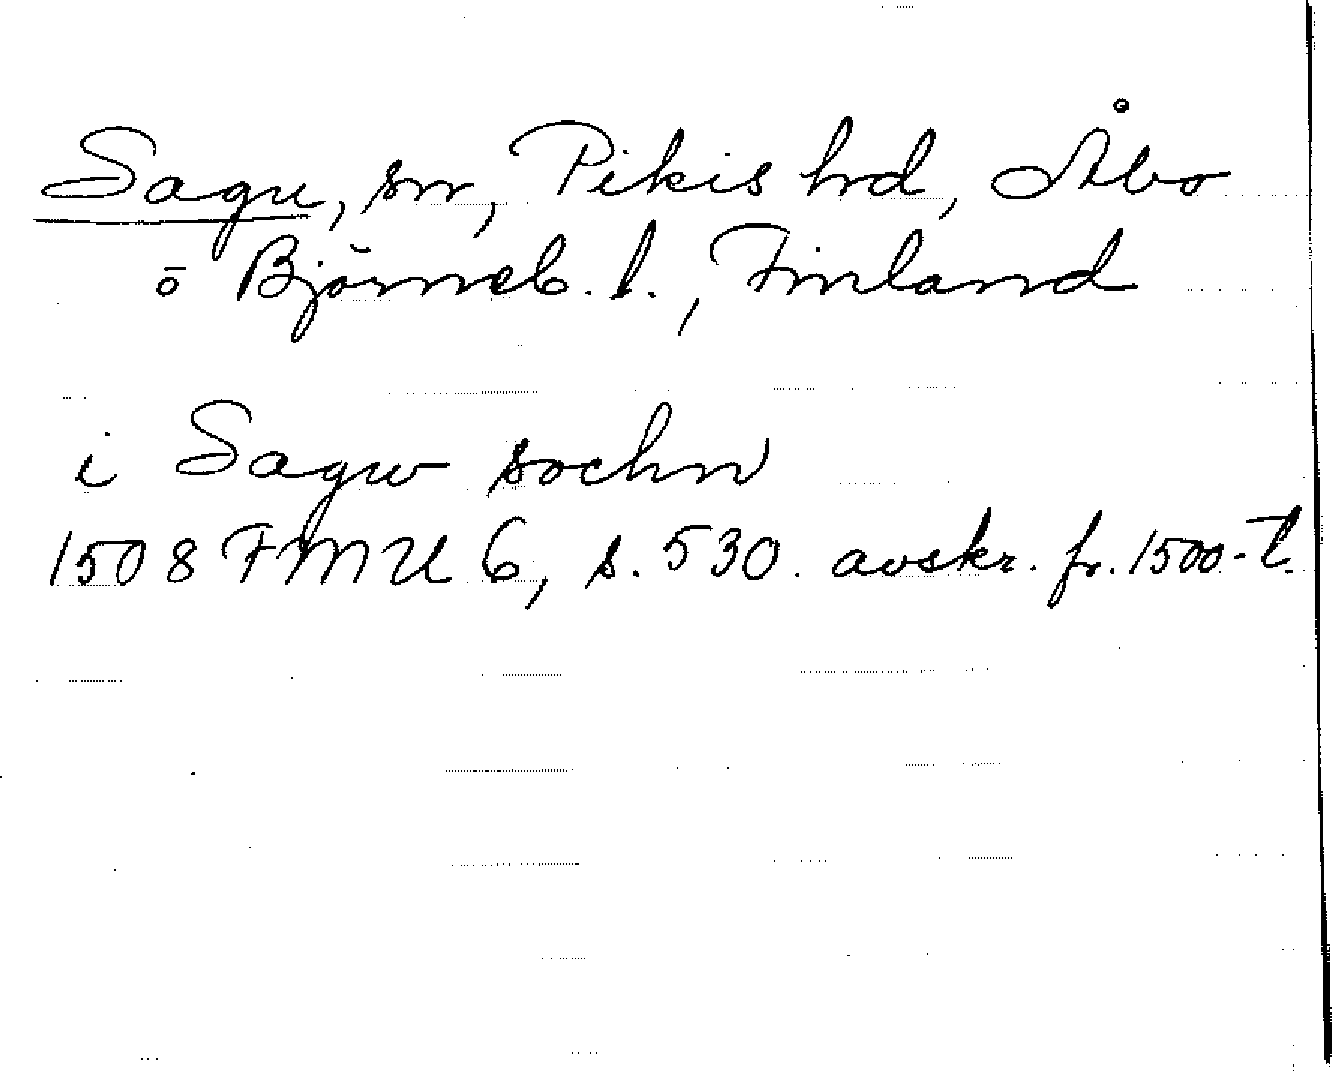 Sagu, sn, Pikis hrd, Åbo
o Björneb. l., Finland
i Sagw sochn
1508 FMU 6, s. 530. avskr. fr. 1500-t.